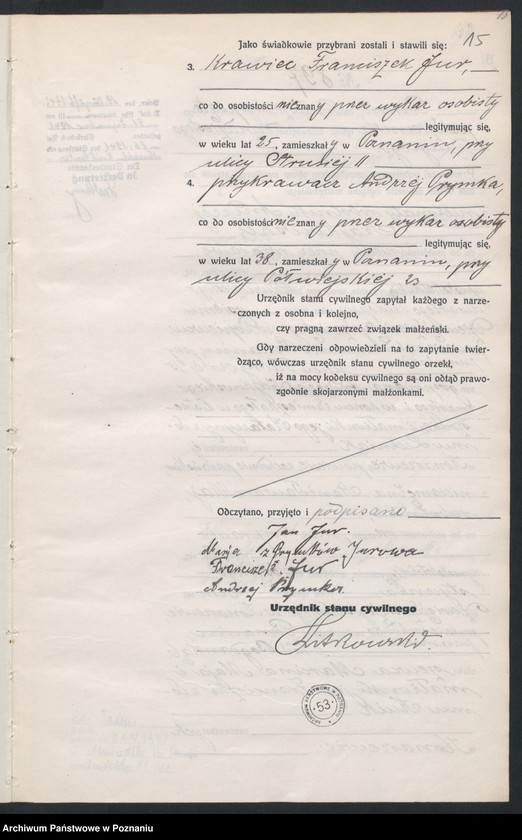 15
Jako świadkowie przybrani zostali i stawili się:
3. Krawiec Franciszek Jur,
co do osobistości nieznany przez wykaz osobisty
legitymując się,
w wieku lat 25, zamieszkały w Poznaniu, przy
ulicy Strusiej 11
4. przykrawacz Andrzej Prymka,
co do osobistości nieznany przez wykaz osobisty
legitymując się,
w wieku lat 38, zamieszkały w Poznaniu, przy
ulicy Półwiejskiej 23
Urzędnik stanu cywilnego zapytał każdego z narze-
czonych z osobna i kolejno,
czy pragną zawrzeć związek małżeński.
Gdy narzeczeni odpowiedzieli na to zapytanie twier-
dząco, wówczas urzędnik stanu cywilnego orzekł,
iż na mocy kodeksu cywilnego są oni odtąd prawo-
zgodnie skojarzonymi małżonkami.
Odczytano, przyjęto i podpisano
Jan Jur.
Marja z Prymków Jurowa
Franciszek Jur
Andrzej Prymka.
Urzędnik stanu cywilnego
Litkowski.
ARCHIWUM PAŃSTWOWE W POZNANIU
53
Archiwum Państwowe w Poznaniu